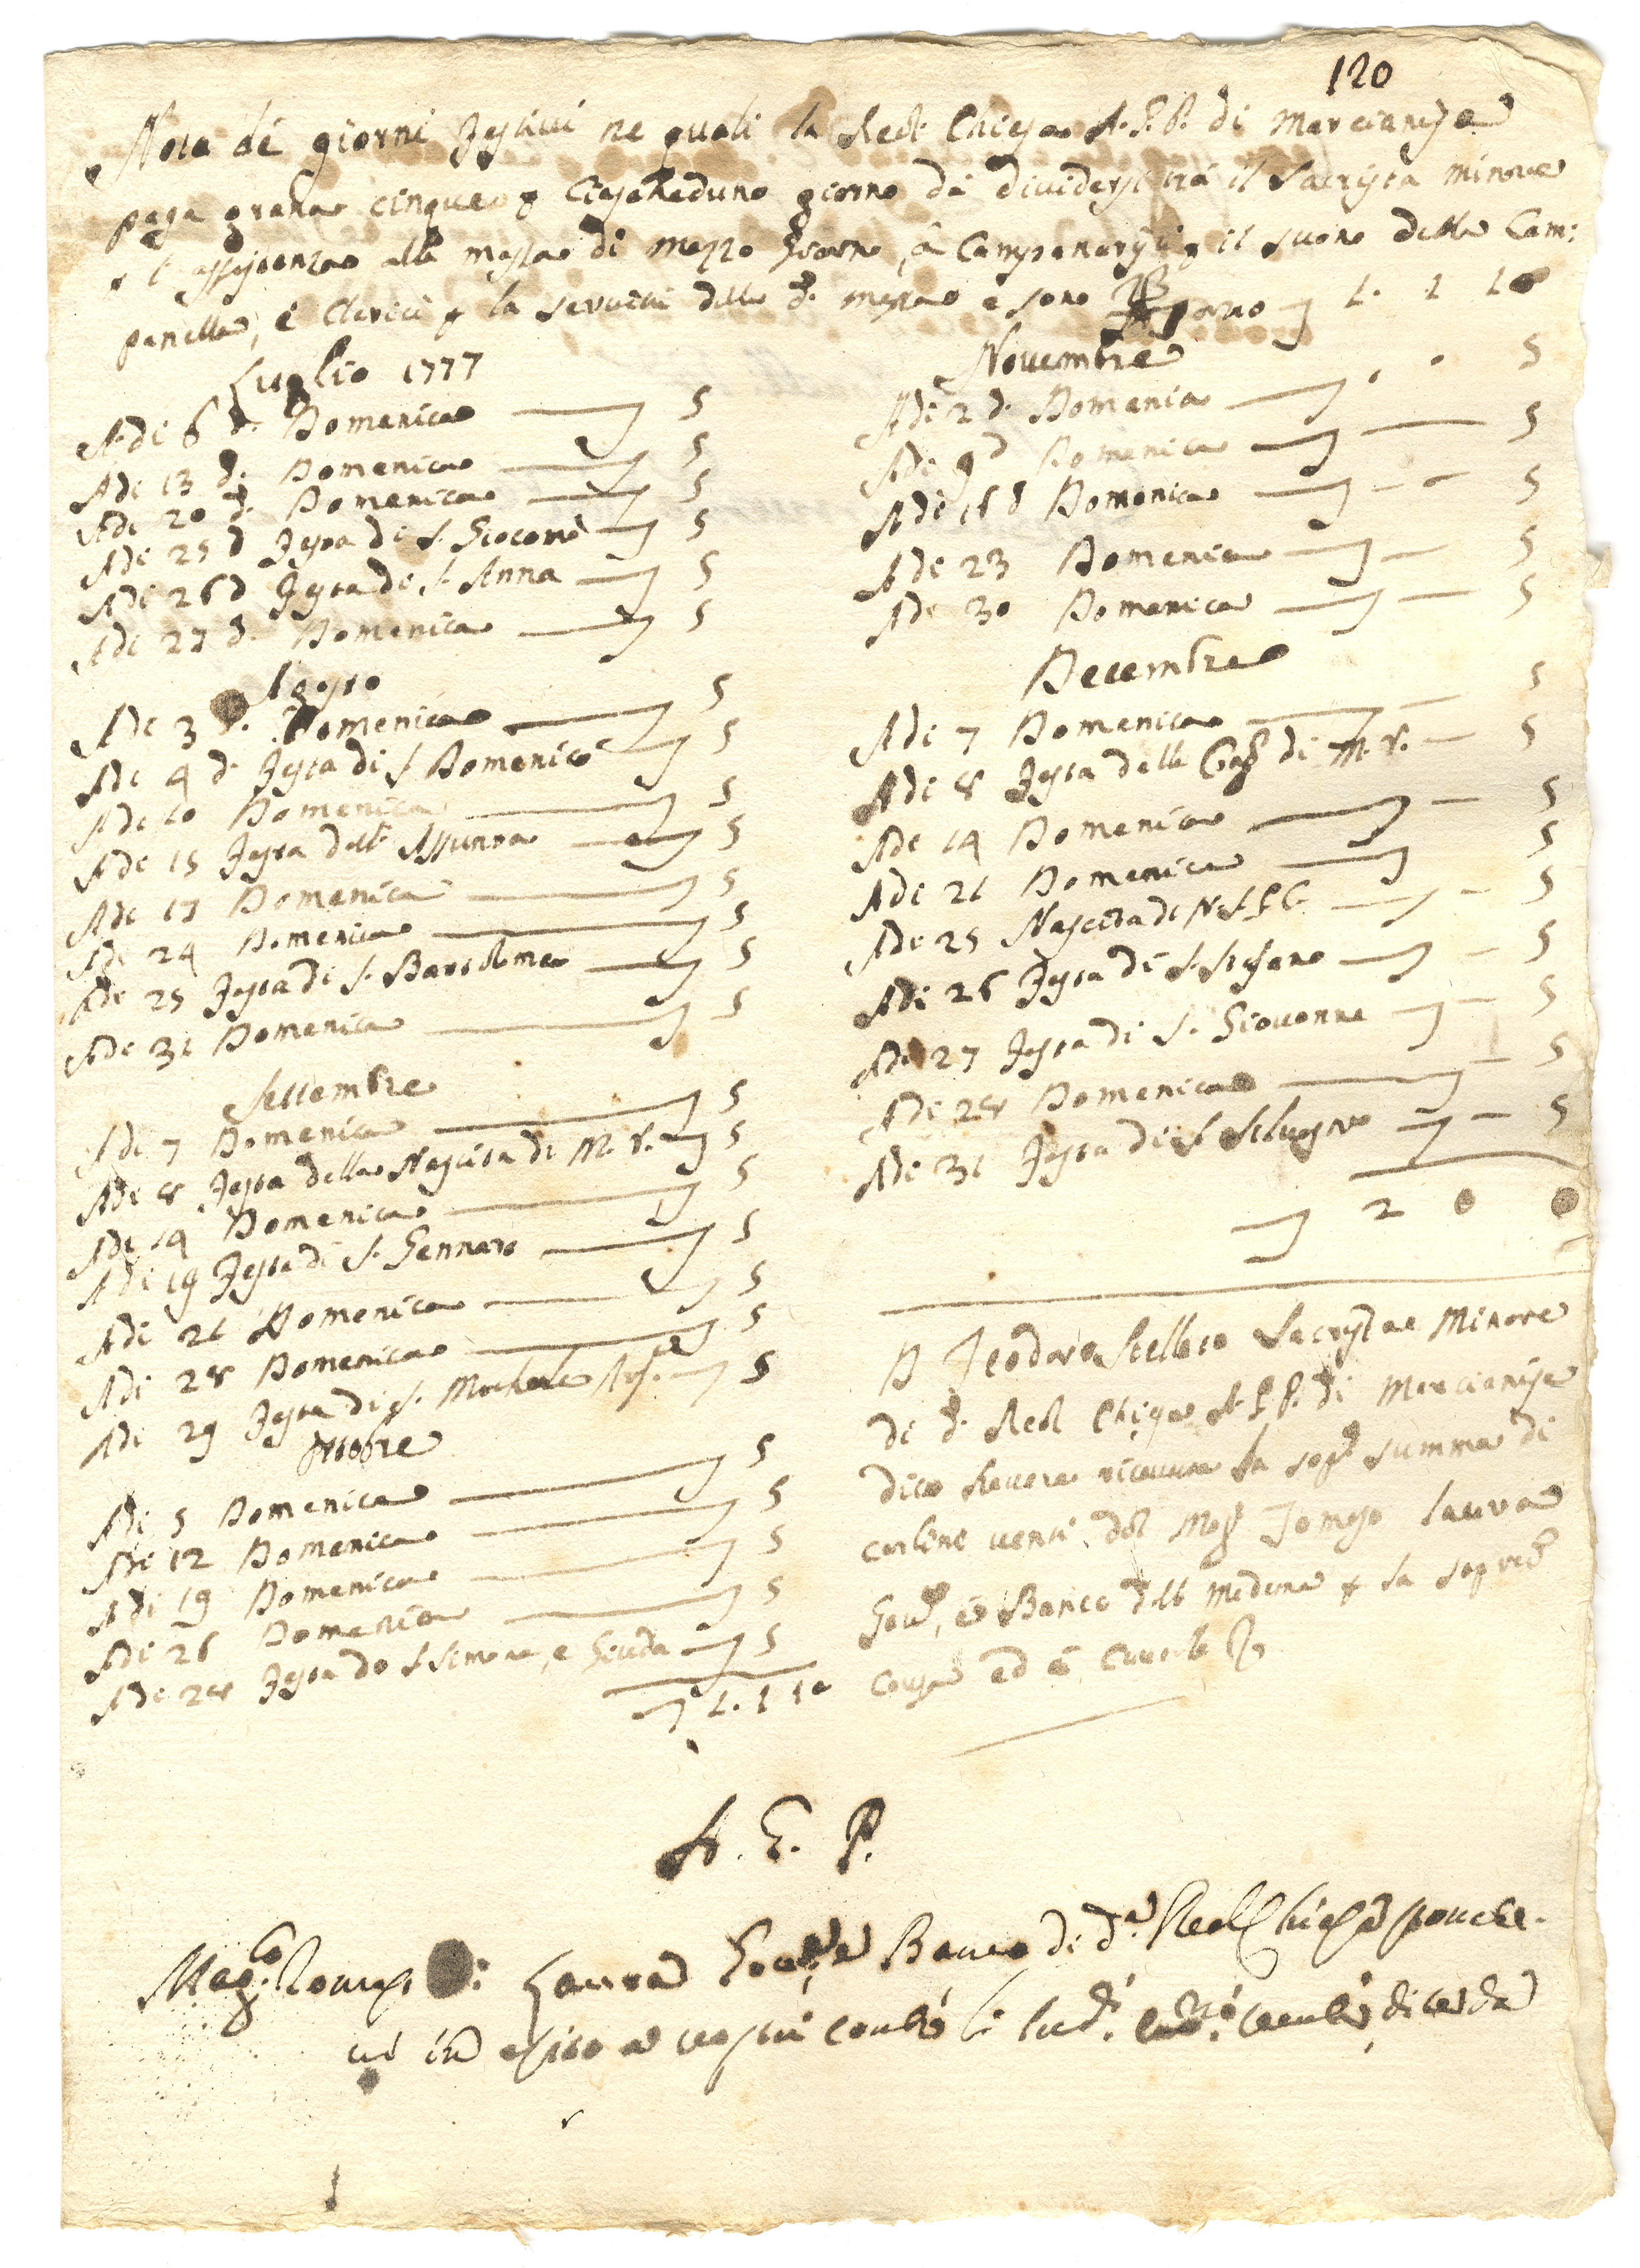 120
Nota de giorni festivi ne quali la Real Chiesa A.G.P. di Marcianise
paga grana cinque p ciascheduno giorno da dividersi trà il Sacrista minore
p l'assistenza alla messa di mezzo giorno, à Campanarij p il suono della Cam:
panella, è Clerici p la servitù della d. messa e sono
Luglio 1777
A di 6 d. Domenica 5
A di 13 d. Domenica 5
A di 20 d. Domenica 5
A di 25 d Festa di S. Giacomo 5
A di 26 d Festa di S. Anna 5
A di 27 d. Domenica 5
Agosto
A di 3 d. Domenica 5
A di 4 d. Festa di S. Domenico 5
A di 10 Domenica 5
A di 15 Festa dell' Assunta 5
A di 17 Domenica 5
A di 24 Domenica 5
A di 25 Festa di S. Bartolomeo 5
A di 31 Domenica 5
Settembre
A di 7 Domenica 5
A di 8 Festa della Nascita di M. V. 5
A di 14 Domenica 5
A di 19 Festa di S. Gennaro 5
A di 21 Domenica 5
A di 28 Domenica 5
A di 29 Festa di S. Michele Arc. 5
Ottobre
A di 5 Domenica 5
A di 12 Domenica 5
A di 19 Domenica 5
A di 26 Domenica 5
A di 28 Festa de S Simone, e Giuda 5
1. 1 10
1. 1 10
Novembre
A di 2 d. Domenica 5
A di 9 d Domenica 5
A di 16 d Domenica 5
A di 23 Domenica 5
A di 30 Domenica 5
Decembre
A di 7 Domenica 5
A di 8 Festa della Conc. di M. V. 5
A di 14 Domenica 5
A di 21 Domenica 5
A di 25 Nascita di N. S. G. C. 5
A di 26 Festa di S. Stefano 5
A di 27 Festa di S. Giovanne 5
A di 28 Domenica 5
A di 31 Festa di S Silvestro 5
2 0 0
D Teodoro Stellato Sacrista Minore
di d. Real Chiesa A.G.P. di Marcianise
dico havere ricevuta la sop. summa di
carline venti dal Mag. Tomaso Laura
Gov., e Banco della Medema p la sopred.
causa ad
A. G. P.
Mag.co Laura Banco di d.a Real Chiesa
esito